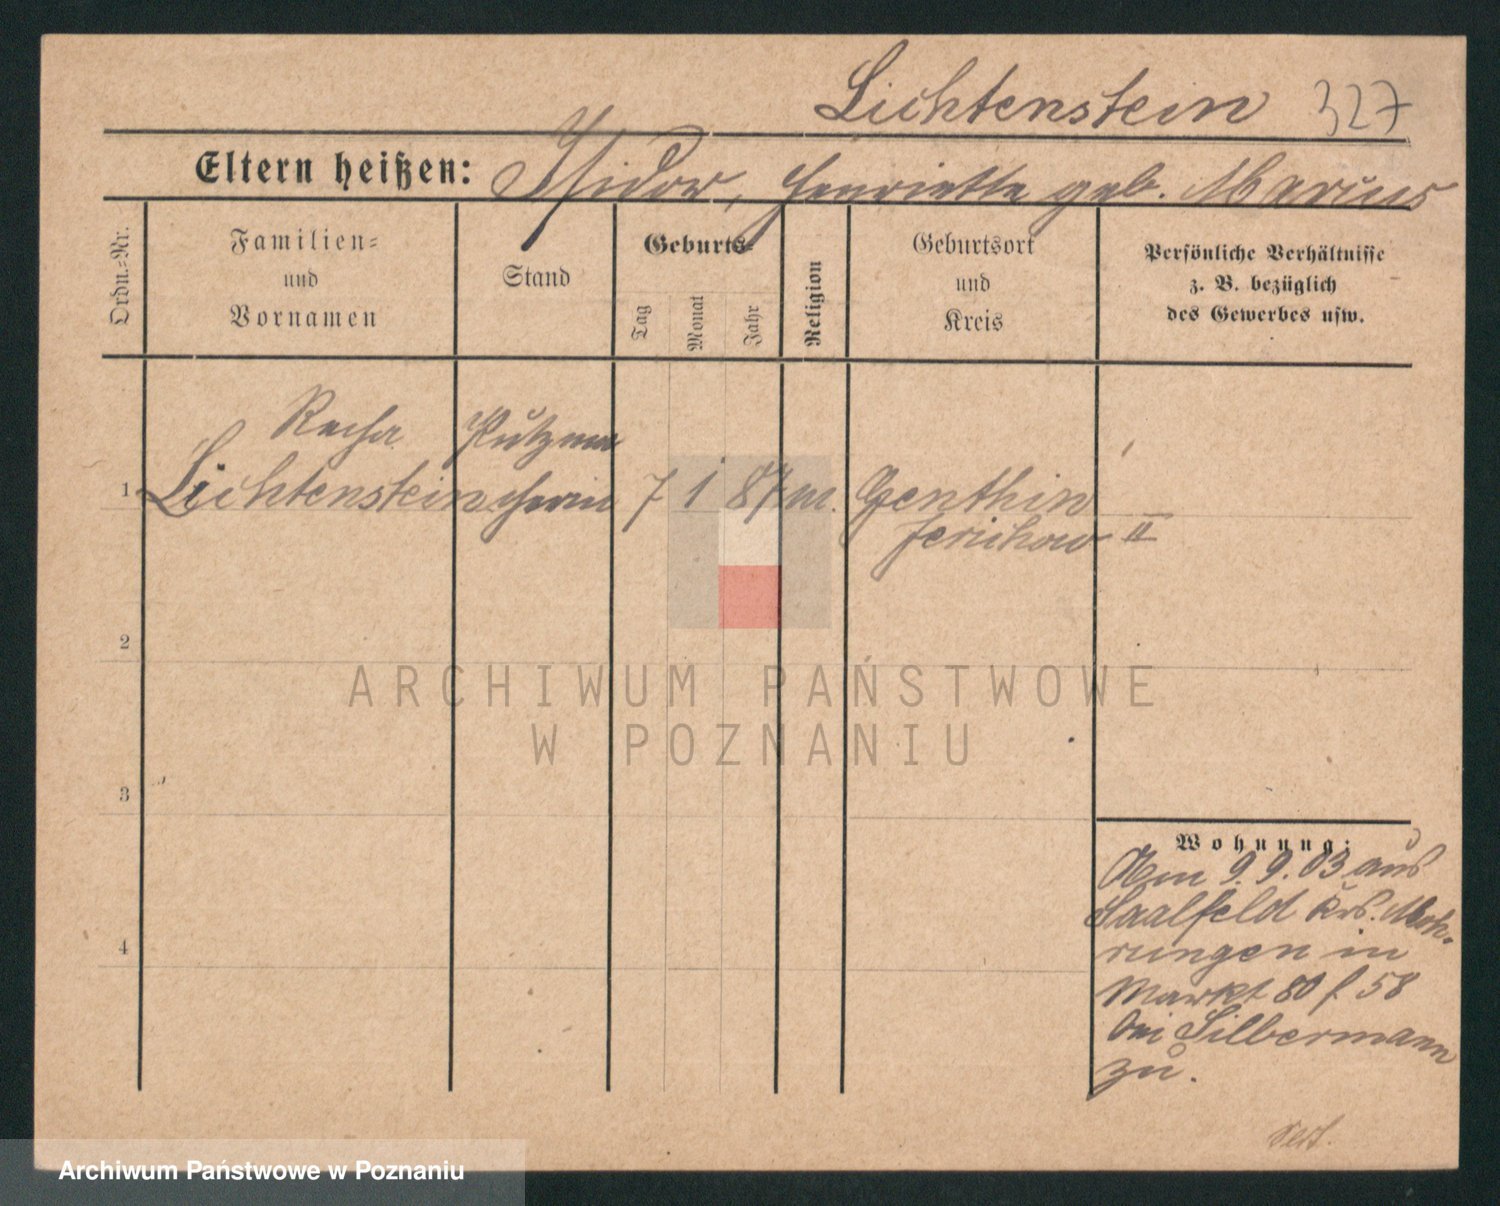 Lichtenstein 327
Eltern heißen: Isidor, Henriette geb. Marcus
Ordn.-Nr.
Familien-
und
Vornamen
Stand
Geburts-
Tag
Monat
Jahr
Religion
Geburtsort
und
Kreis
Persönliche Verhältnisse
z. B. bezüglich
des Gewerbes usw.
Recha Putzma
1 Lichtenstein cherin 7 1 87 m. Genthin
Jerichow II
2
3
4
Wohnung:
Am 9.9.03 aus
Saalfeld Krs. Moh-
rungen in
Markt 80 f 58
bei Silbermann
zu.
ARCHIWUM PAŃSTWOWE
W POZNANIU
Archiwum Państwowe w Poznaniu